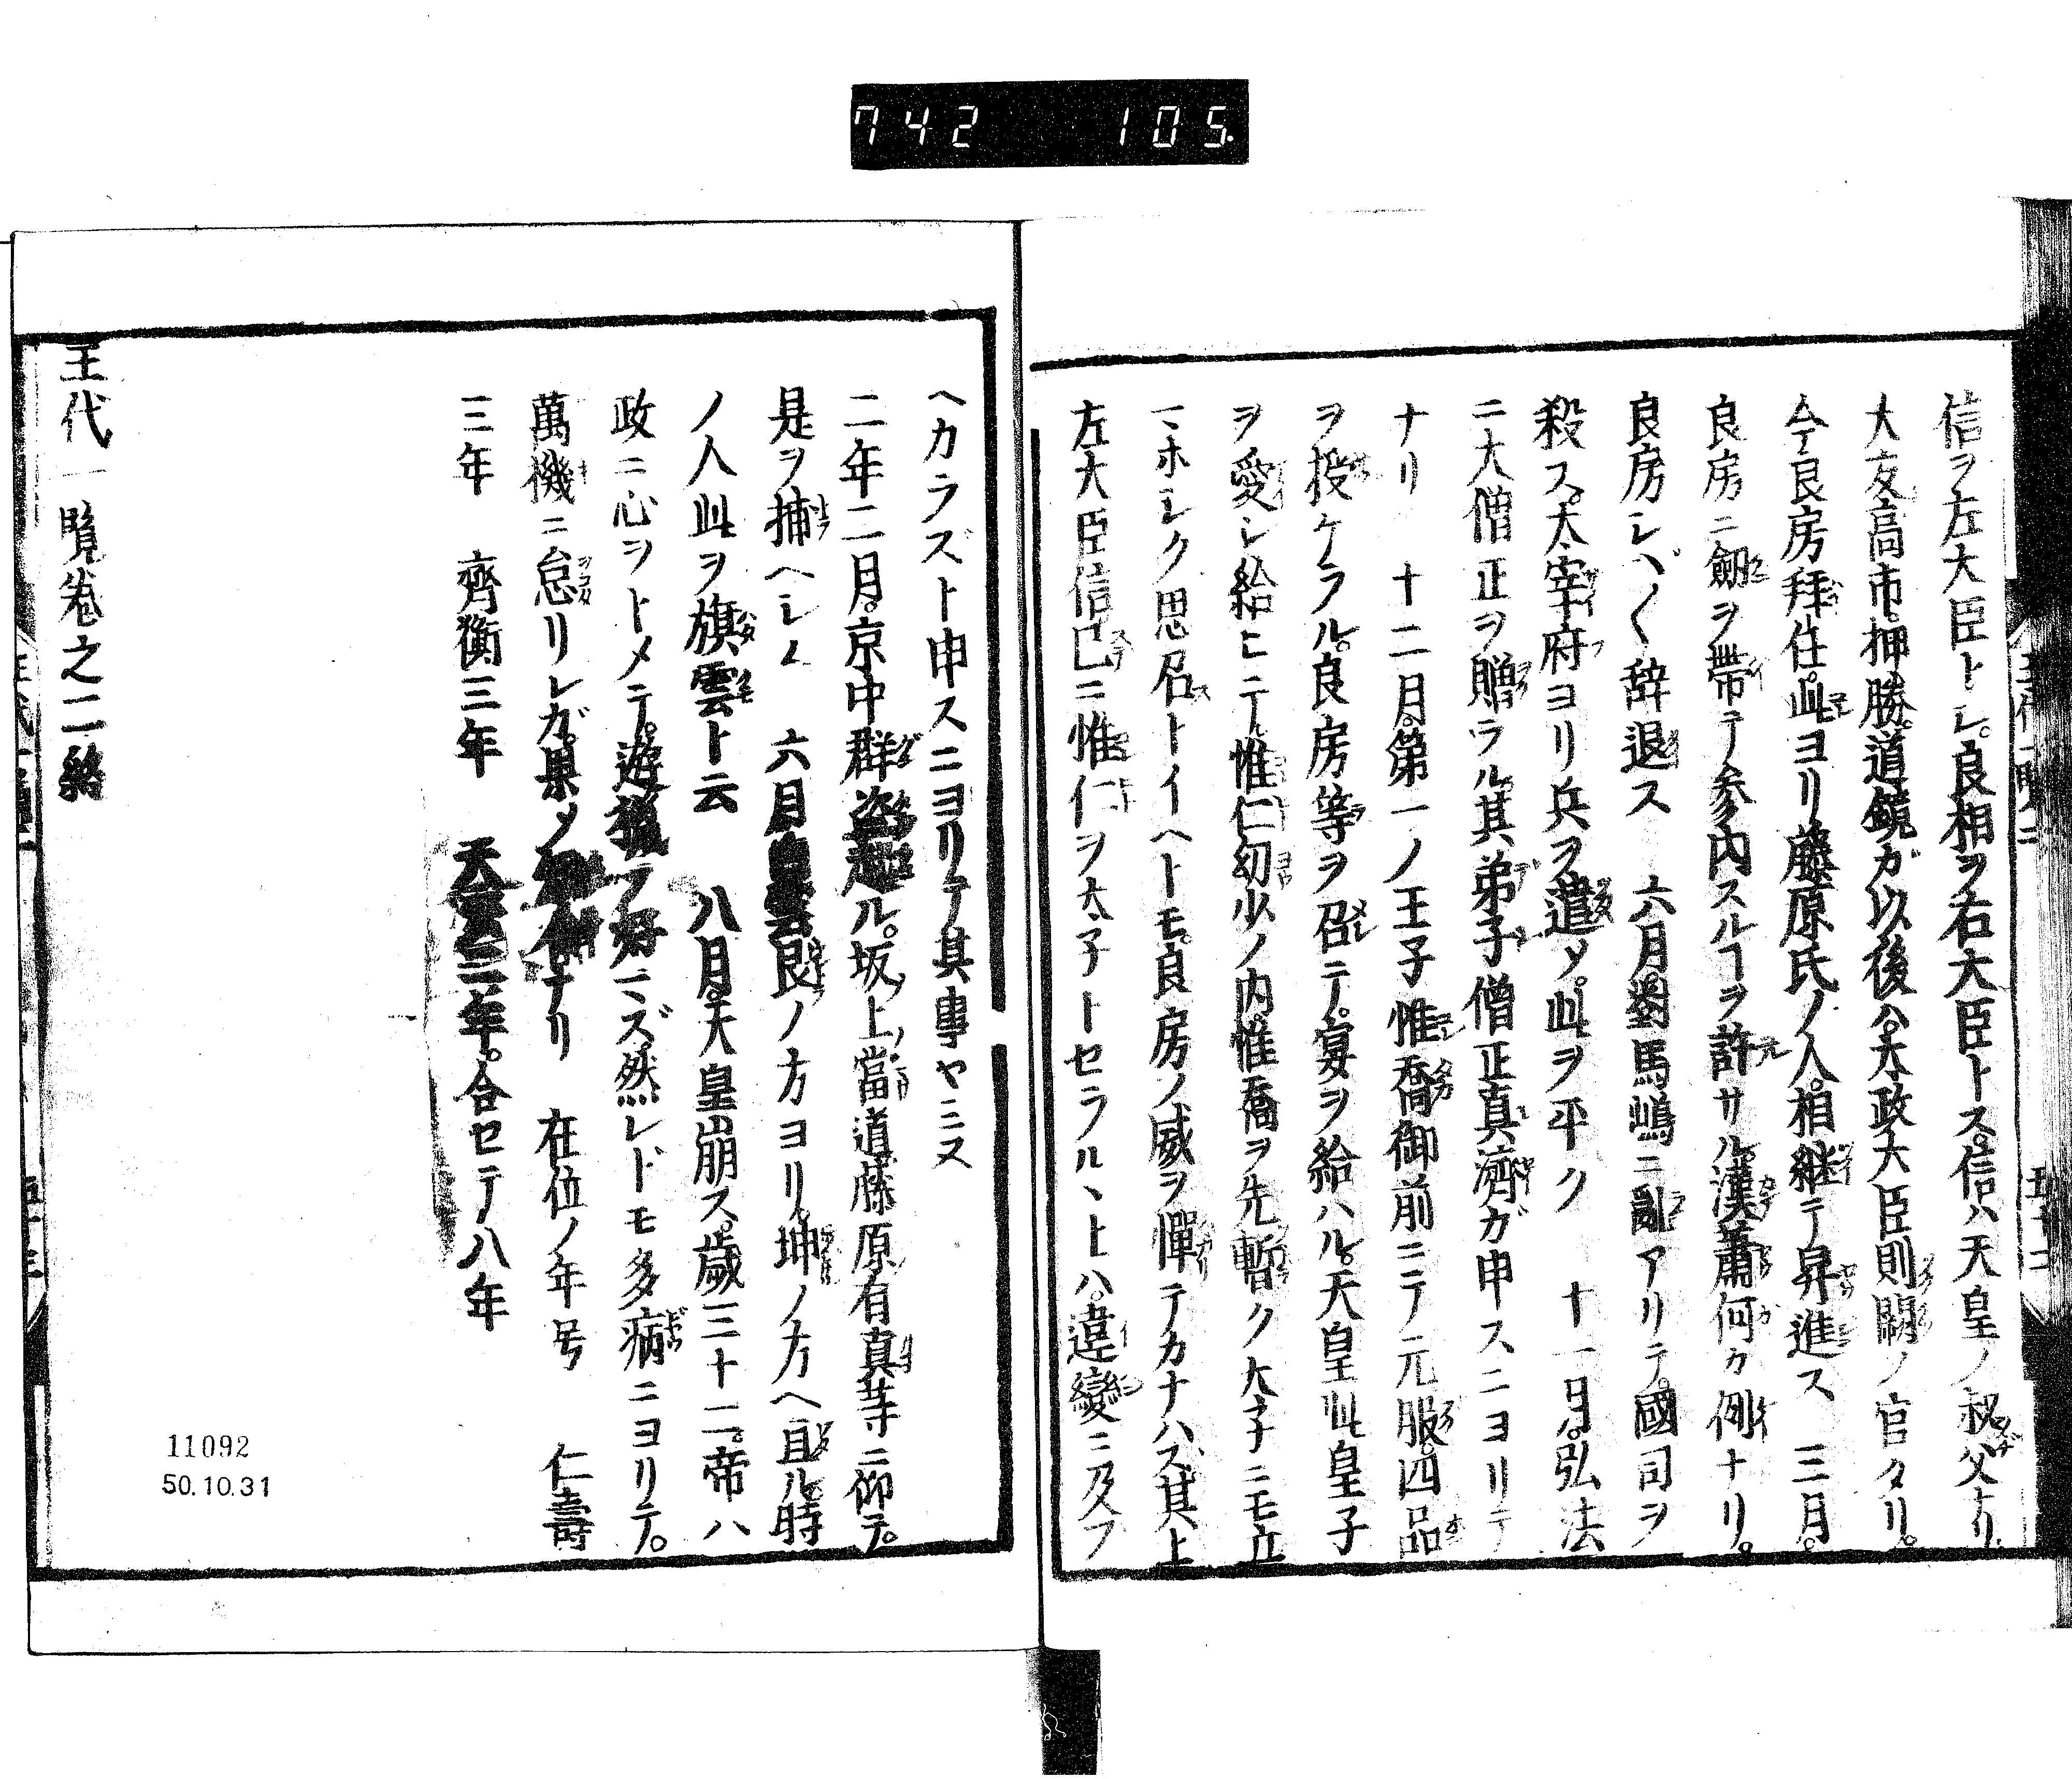 742 105.
信ヲ左大臣トシ。良相ヲ右大臣トス。信ハ天皇ノ叔父ナリ。
大友高市。押勝。道鏡ガ以後ハ。太政大臣則闕ノ官タリ。
今良房拜任。此ヨリ藤原氏ノ人。相継テ昇進ス 三月。
良房ニ劔ヲ帶テ參内スルヿヲ許サル。漢蕭何カ例ナリ。
良房シバ〱辞退ス 六月。對馬嶋ニ亂アリテ。國司ヲ
殺ス。太宰府ヨリ兵ヲ遣メ。此ヲ平ク 十一月。弘法
ニ大僧正ヲ贈ラル。其弟子僧正真濟ガ申スニヨリテ
ナリ 十二月。第一ノ王子惟喬御前ニテ元服。四品
ヲ授ケラル。良房等ヲ召ニテ。宴ヲ給ハル。天皇此皇子
ヲ愛シ給ヒニテ。惟仁幼少ノ内。惟喬ヲ先暫ク太子ニモ立
マホシク思召トイヘトモ。良房ノ威ヲ憚テカナハズ。其上
左大臣信已ニ惟仁ヲ太子トセラルヽ上ハ。違變ニ及フ
ヘカラズト申スニヨリテ其事ヤミヌ
二年二月。京中群盗起ル。坂上當道藤原有真等ニ仰テ。
是ヲ捕ヘシム 六月白雲艮ノ方ヨリ。坤ノ方ヘ亘ル。時
ノ人此ヲ旗雲ト云 八月。天皇崩ス。歳三十二。帝ハ
政ニ心ヲトメテ。遊猟ヲ好ミズ然レドモ多病ニヨリテ。
萬機ニ怠リシガ。果メナリ 在位ノ年号 仁壽
三年 齊衡三年 天安二年。合セテ八年
王代一覧巻之二終
11092
50.10.31